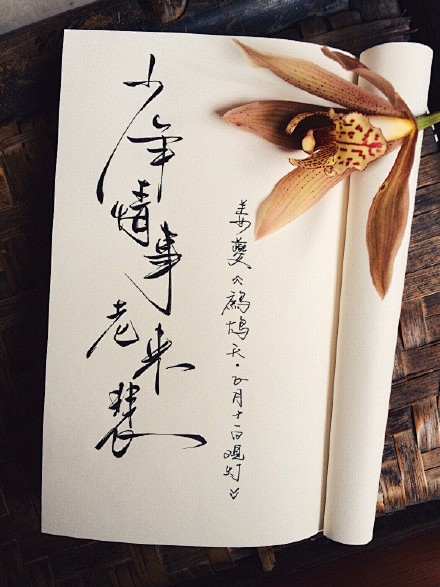 少年情事老来悲
姜夔《鹧鸪天·正月十一日观灯》